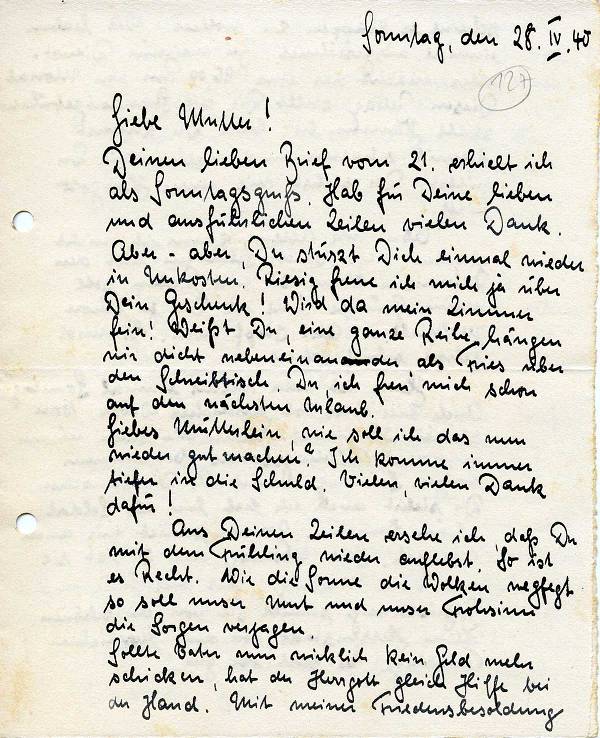 Sonntag, den 28. IV. 40
127
Liebe Mutter!
Deinen lieben Brief vom 21. erhielt ich
als Sonntagsgruß. Hab für Deine lieben
und ausführlichen Zeilen vielen Dank.
Aber - aber, Du stürzt Dich einmal wieder
in Unkosten. Riesig freue ich mich ja über
Dein Geschenk! Wird da mein Zimmer
fein! Weißt Du, eine ganze Reihe hängen
wir dicht nebeneinander als Fries über
den Schreibtisch. Du ich freu' mich schon
auf den nächsten Urlaub.
Liebes Mütterlein, wie soll ich das nun
wieder gut machen? Ich komme immer
tiefer in die Schuld. Vielen, vielen Dank
dafür!
Aus Deinen Zeilen ersehe ich, daß Du
mit dem Frühling wieder auflebst. So ist
es Recht. Wie die Sonne die Wolken wegfegt
so soll unser Mut und unser Frohsinn
die Sorgen verjagen.
Sollte Vater nun wirklich kein Geld mehr
schicken, hat der Herrgott gleich Hilfe bei
der Hand. Mit meiner Friedensbesoldung